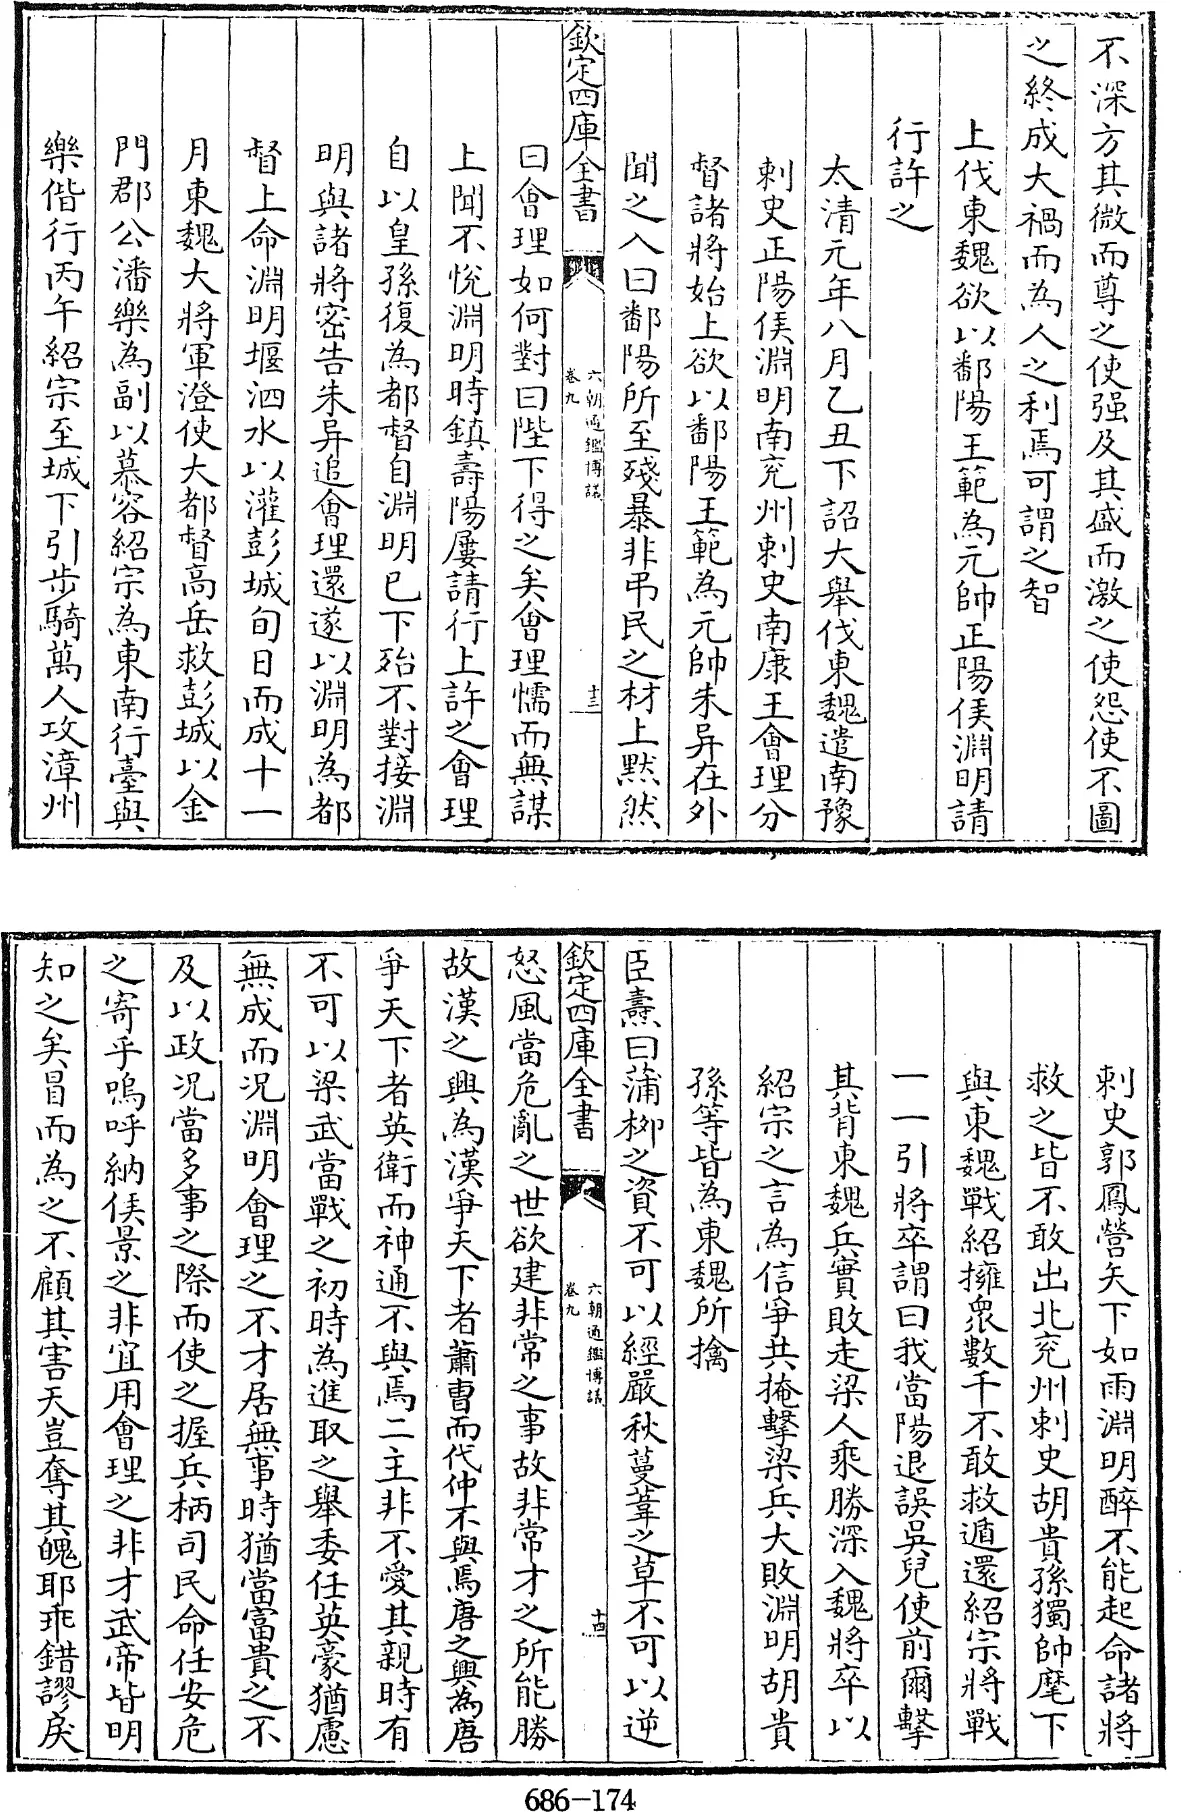 不深方其微而尊之使强及其盛而激之使怨使不圖
之終成大禍而為人之利焉可謂之智
上伐東魏欲以鄱陽王範為元帥正陽侯淵明請
行許之
太清元年八月乙丑下詔大舉伐東魏遣南豫
刺史正陽侯淵明南兖州刺史南康王會理分
督諸將始上欲以鄱陽王範為元帥朱异在外
聞之入曰鄱陽所至殘暴非弔民之材上黙然
欽定四庫全書
六朝通鑑博議
卷九
十三
曰會理如何對曰陛下得之矣會理懦而無謀
上聞不悅淵明時鎮壽陽屢請行上許之會理
自以皇孫復為都督自淵明已下殆不對接淵
明與諸將密告朱异追會理還遂以淵明為都
督上命淵明堰泗水以灌彭城旬日而成十一
月東魏大將軍澄使大都督高岳救彭城以金
門郡公潘樂為副以慕容紹宗為東南行臺與
樂偕行丙午紹宗至城下引步騎萬人攻漳州
刺史郭鳳營矢下如雨淵明醉不能起命諸將
救之皆不敢出北兖州刺史胡貴孫獨帥麾下
與東魏戰紹擁衆數千不敢救遁還紹宗將戰
一一引將卒謂曰我當陽退誤吳兒使前爾擊
其背東魏兵實敗走梁人乘勝深入魏將卒以
紹宗之言為信爭共掩擊梁兵大敗淵明胡貴
孫等皆為東魏所擒
臣燾曰蒲柳之資不可以經嚴秋蔓葦之草不可以逆
欽定四庫全書
六朝通鑑博議
卷九
十四
怒風當危亂之世欲建非常之事故非常才之所能勝
故漢之興為漢爭天下者蕭曹而代仲不與焉唐之興為唐
爭天下者英衛而神通不與焉二主非不愛其親時有
不可以梁武當戰之初時為進取之舉委任英豪猶慮
無成而况淵明會理之不才居無事時猶當富貴之不
及以政况當多事之際而使之握兵柄司民命任安危
之寄乎嗚呼納侯景之非宜用會理之非才武帝皆明
知之矣冒而為之不顧其害天豈奪其魄耶乖錯謬戾
686-174